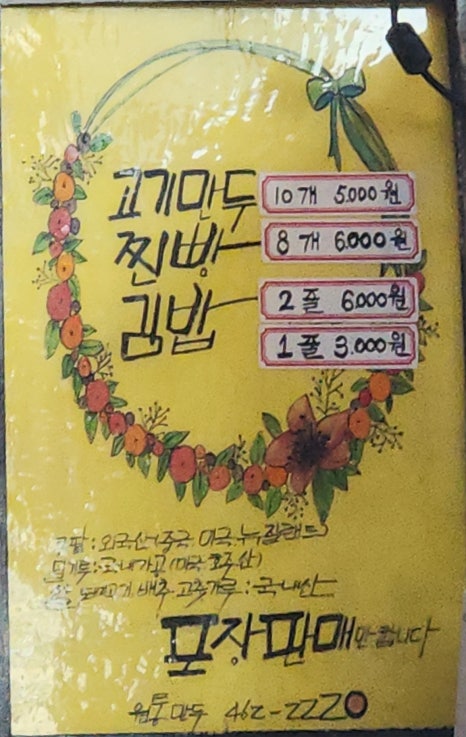 고기만두 10개 5.000원
찐빵 8개 6.000원
김밥 2줄 6.000원
1줄 3.000원
팥 : 외국산(중국. 미국. 뉴질랜드)
밀가루 : 국내가공(미국. 호주산)
쌀. 돼지고기. 배추. 고추가루 : 국내산
포장판매만 합니다
원통만두 462-2220